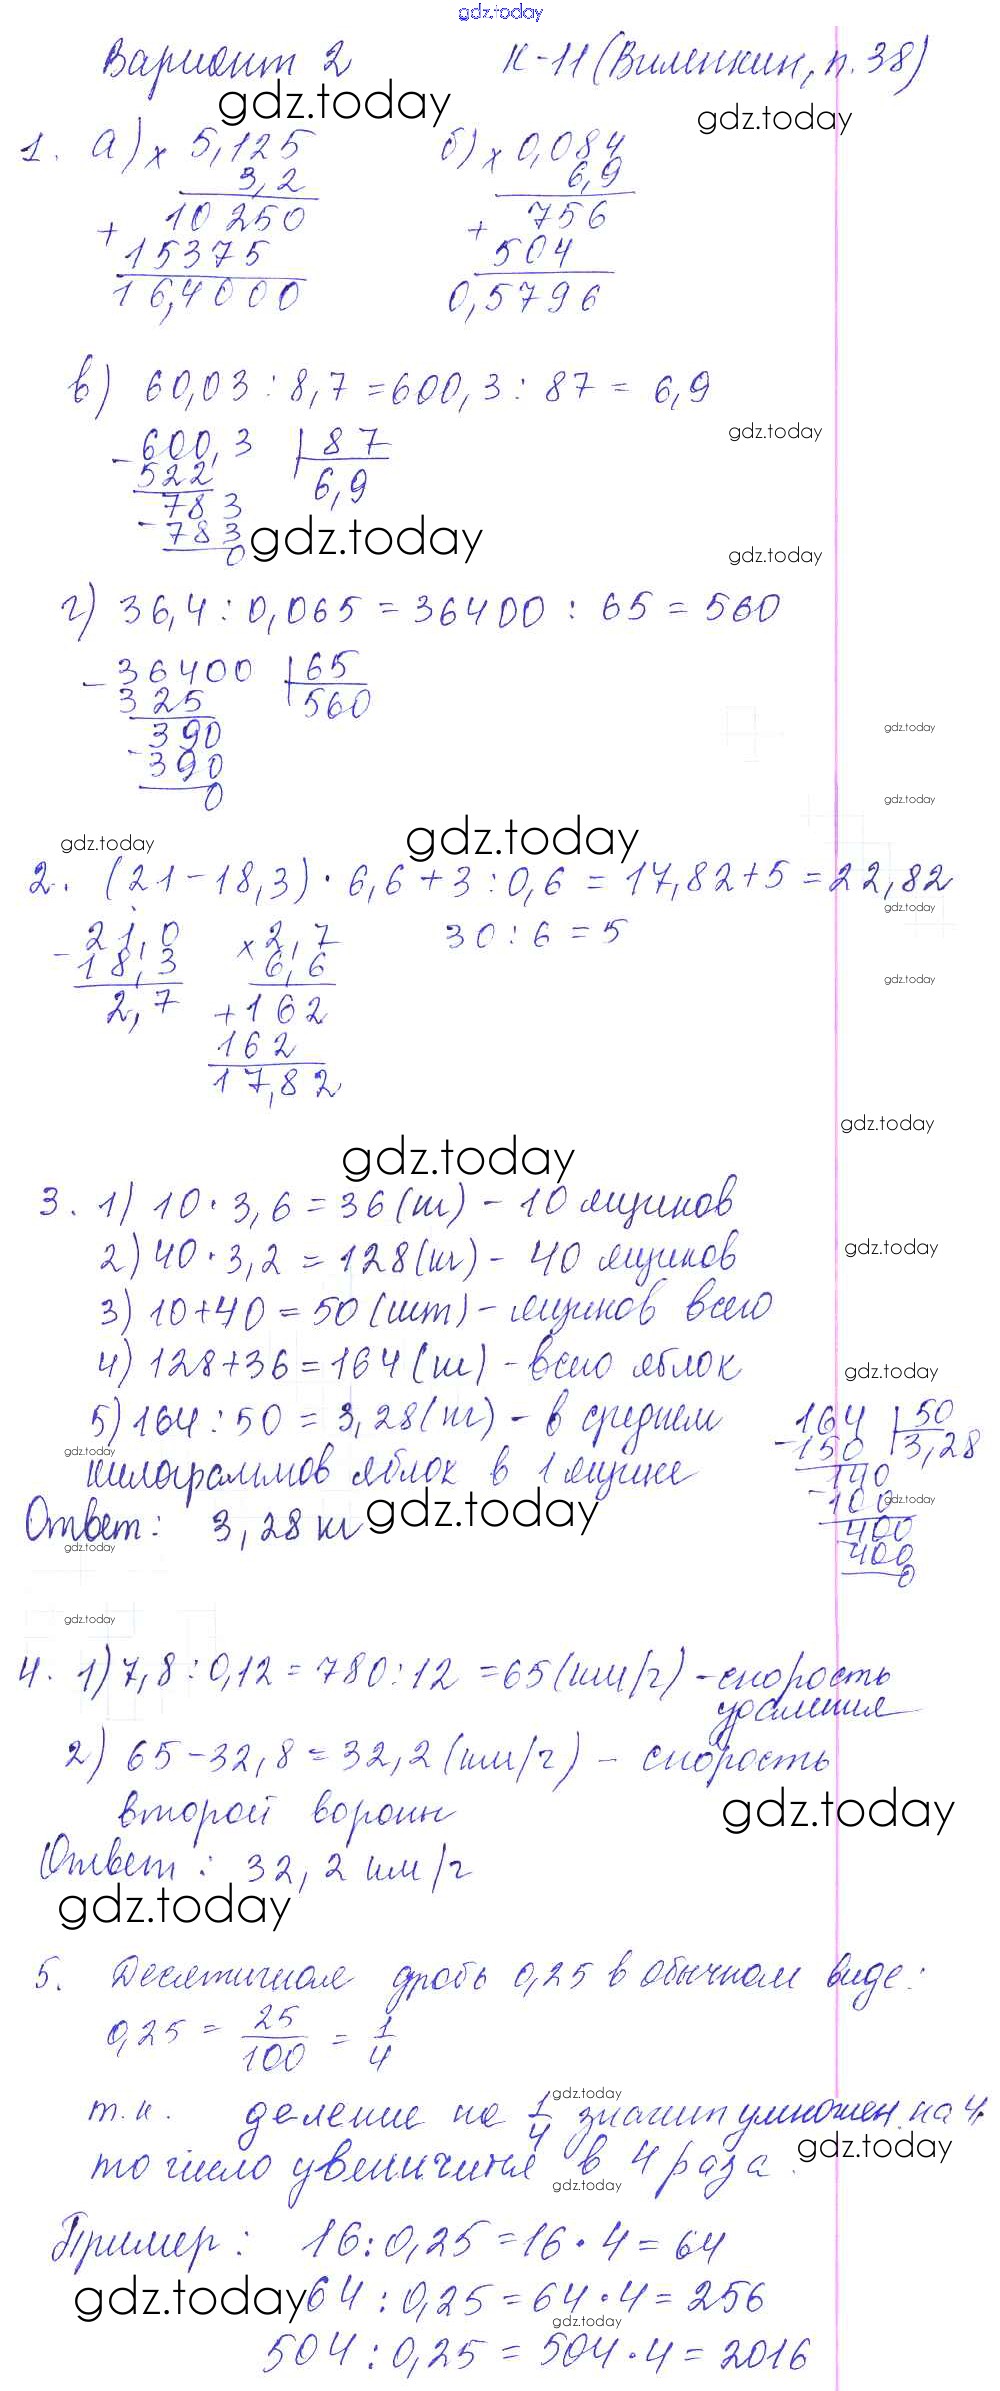 gdz.today
Вариант 2 К-11 (Виленкин, п. 38)
gdz.today
gdz.today
1. а) × 5,125 б) × 0,084
3,2 6,9
+ 10 250 + 756
15375 504
16,4000 0,5796
в) 60,03 : 8,7 = 600,3 : 87 = 6,9
gdz.today
- 600,3 87
522 6,9
783
- 783
0
gdz.today
gdz.today
г) 36,4 : 0,065 = 36400 : 65 = 560
- 36400 65
325 560
390
- 390
0
gdz.today
gdz.today
gdz.today
gdz.today
2. (21 - 18,3) · 6,6 + 3 : 0,6 = 17,82 + 5 = 22,82
gdz.today
- 21,0 × 2,7 30 : 6 = 5
18,3 6,6
2,7 + 162
162
17,82
gdz.today
gdz.today
gdz.today
3. 1) 10 · 3,6 = 36 (кг) - 10 ящиков
2) 40 · 3,2 = 128 (кг) - 40 ящиков
gdz.today
3) 10 + 40 = 50 (шт) - ящиков всего
4) 128 + 36 = 164 (кг) - всего яблок
gdz.today
5) 164 : 50 = 3,28 (кг) - в среднем
килограммов яблок в 1 ящике
gdz.today
- 164 50
150 3,28
140
- 100
400
400
0
gdz.today
Ответ: 3,28 кг
gdz.today
gdz.today
gdz.today
4. 1) 7,8 : 0,12 = 780 : 12 = 65 (км/ч) - скорость
удаления
2) 65 - 32,8 = 32,2 (км/ч) - скорость
второй вороны
gdz.today
Ответ: 32,2 км/ч
gdz.today
5. Десятичная дробь 0,25 в обычном виде:
0,25 = 25/100 = 1/4
gdz.today
т.к. деление на 1/4 значит умножен. на 4,
gdz.today
то число увеличится в 4 раза.
gdz.today
Пример: 16 : 0,25 = 16 · 4 = 64
gdz.today
64 : 0,25 = 64 · 4 = 256
gdz.today
504 : 0,25 = 504 · 4 = 2016